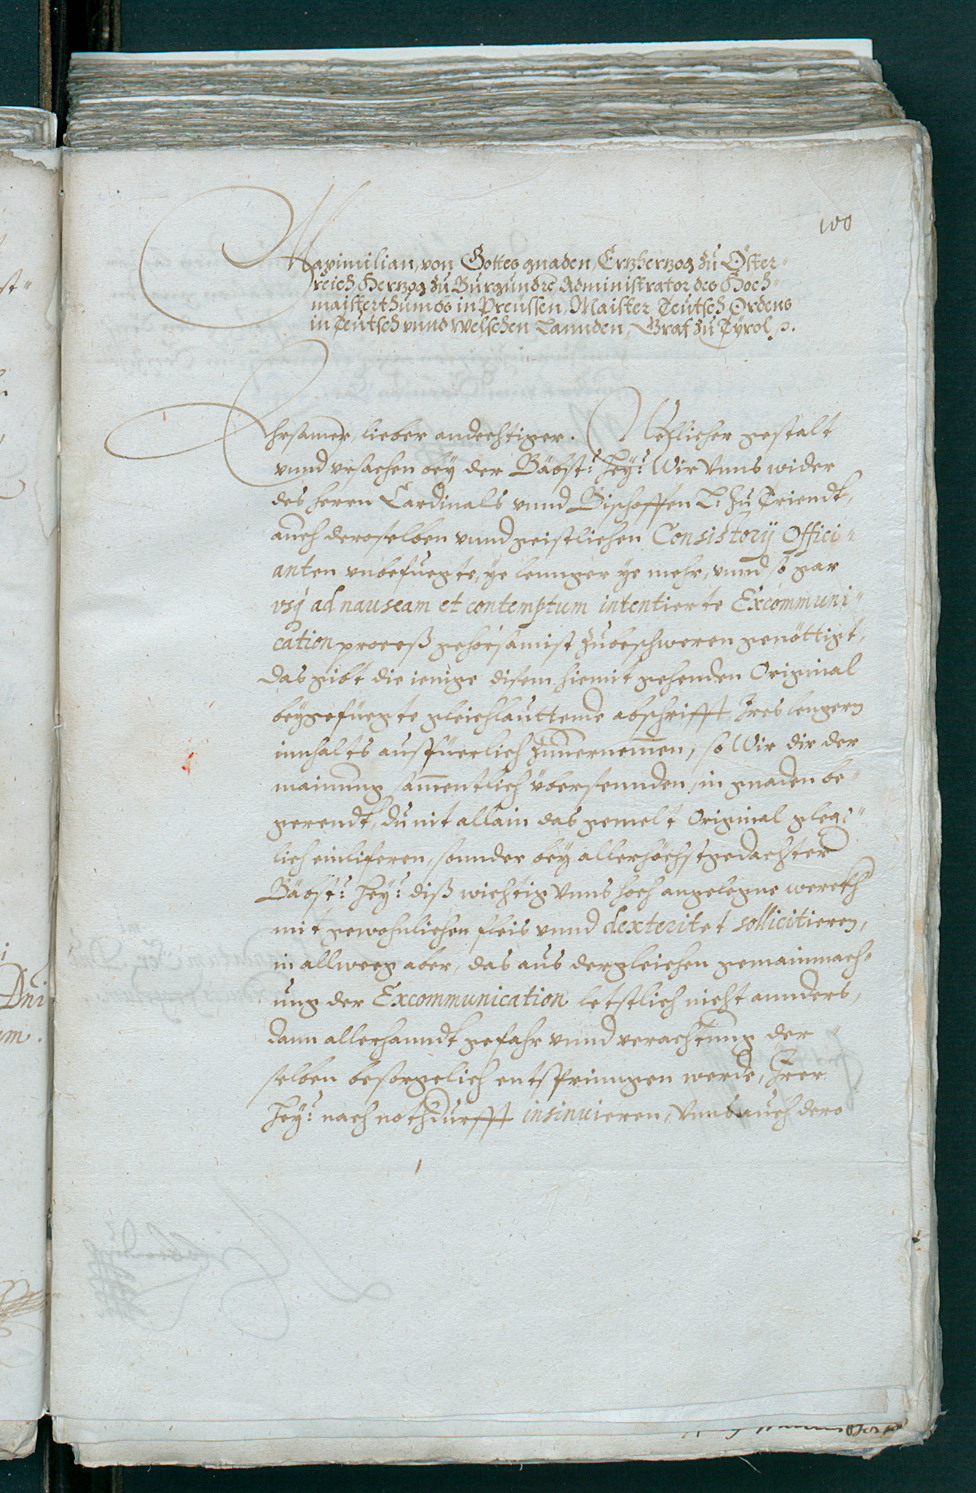 100
Maximilian, von Gottes gnaden, Ertzhertzog zu Öster-
reich Hertzog zu Burgundt Administrator des Hoch-
maisterthumbs in Preussen, Maister Teutsch Ordens
in Teutsch vnnd Welschen Lannden, Graf zu Tyrol p.
Ehrsamer, lieber andechtiger. Welcher gestalt
vnnd vrsachen bey der Bäbst: Hey: Wir Vnns wider
des herrn Cardinals vnnd Bischoffen L: zu Triendt,
auch deroselben vnnd geistlichen Consistorij Offici-
anten vnbefuegte, ye lennger ye mehr, vnnd so gar
vsq ad nauseam et contemptum intentierte Excommuni-
cation proceß gehorsamist zubeschweren genöttigt,
das gibt die ienige disem hiemit gehenden Original
beygefüegte gleichlauttende abschrifft Ires lengern
innhalts ausfüerlich zuuernemen, so Wir dir der
mainung sammentlich übersennden, in gnaden be-
gerendt, du nit allain das gemelt Original
lich einliferen, sonnder bey allerhöchstgedachter
Bäbst: Hey: diß wichtig Vnns hoch angelegne werckh
mit gewohnlichen fleis vnnd dexteritet sollicitieren,
in allweeg aber, das aus dergleichen gemainmach-
ung der Excommunication letstlich nicht annders,
dann allerhanndt gefahr vnnd verachtung der-
selben besorgelich entspringen werde, Irer
Hey: nach notdurfft insinuieren, Vnns auch dero
Dni